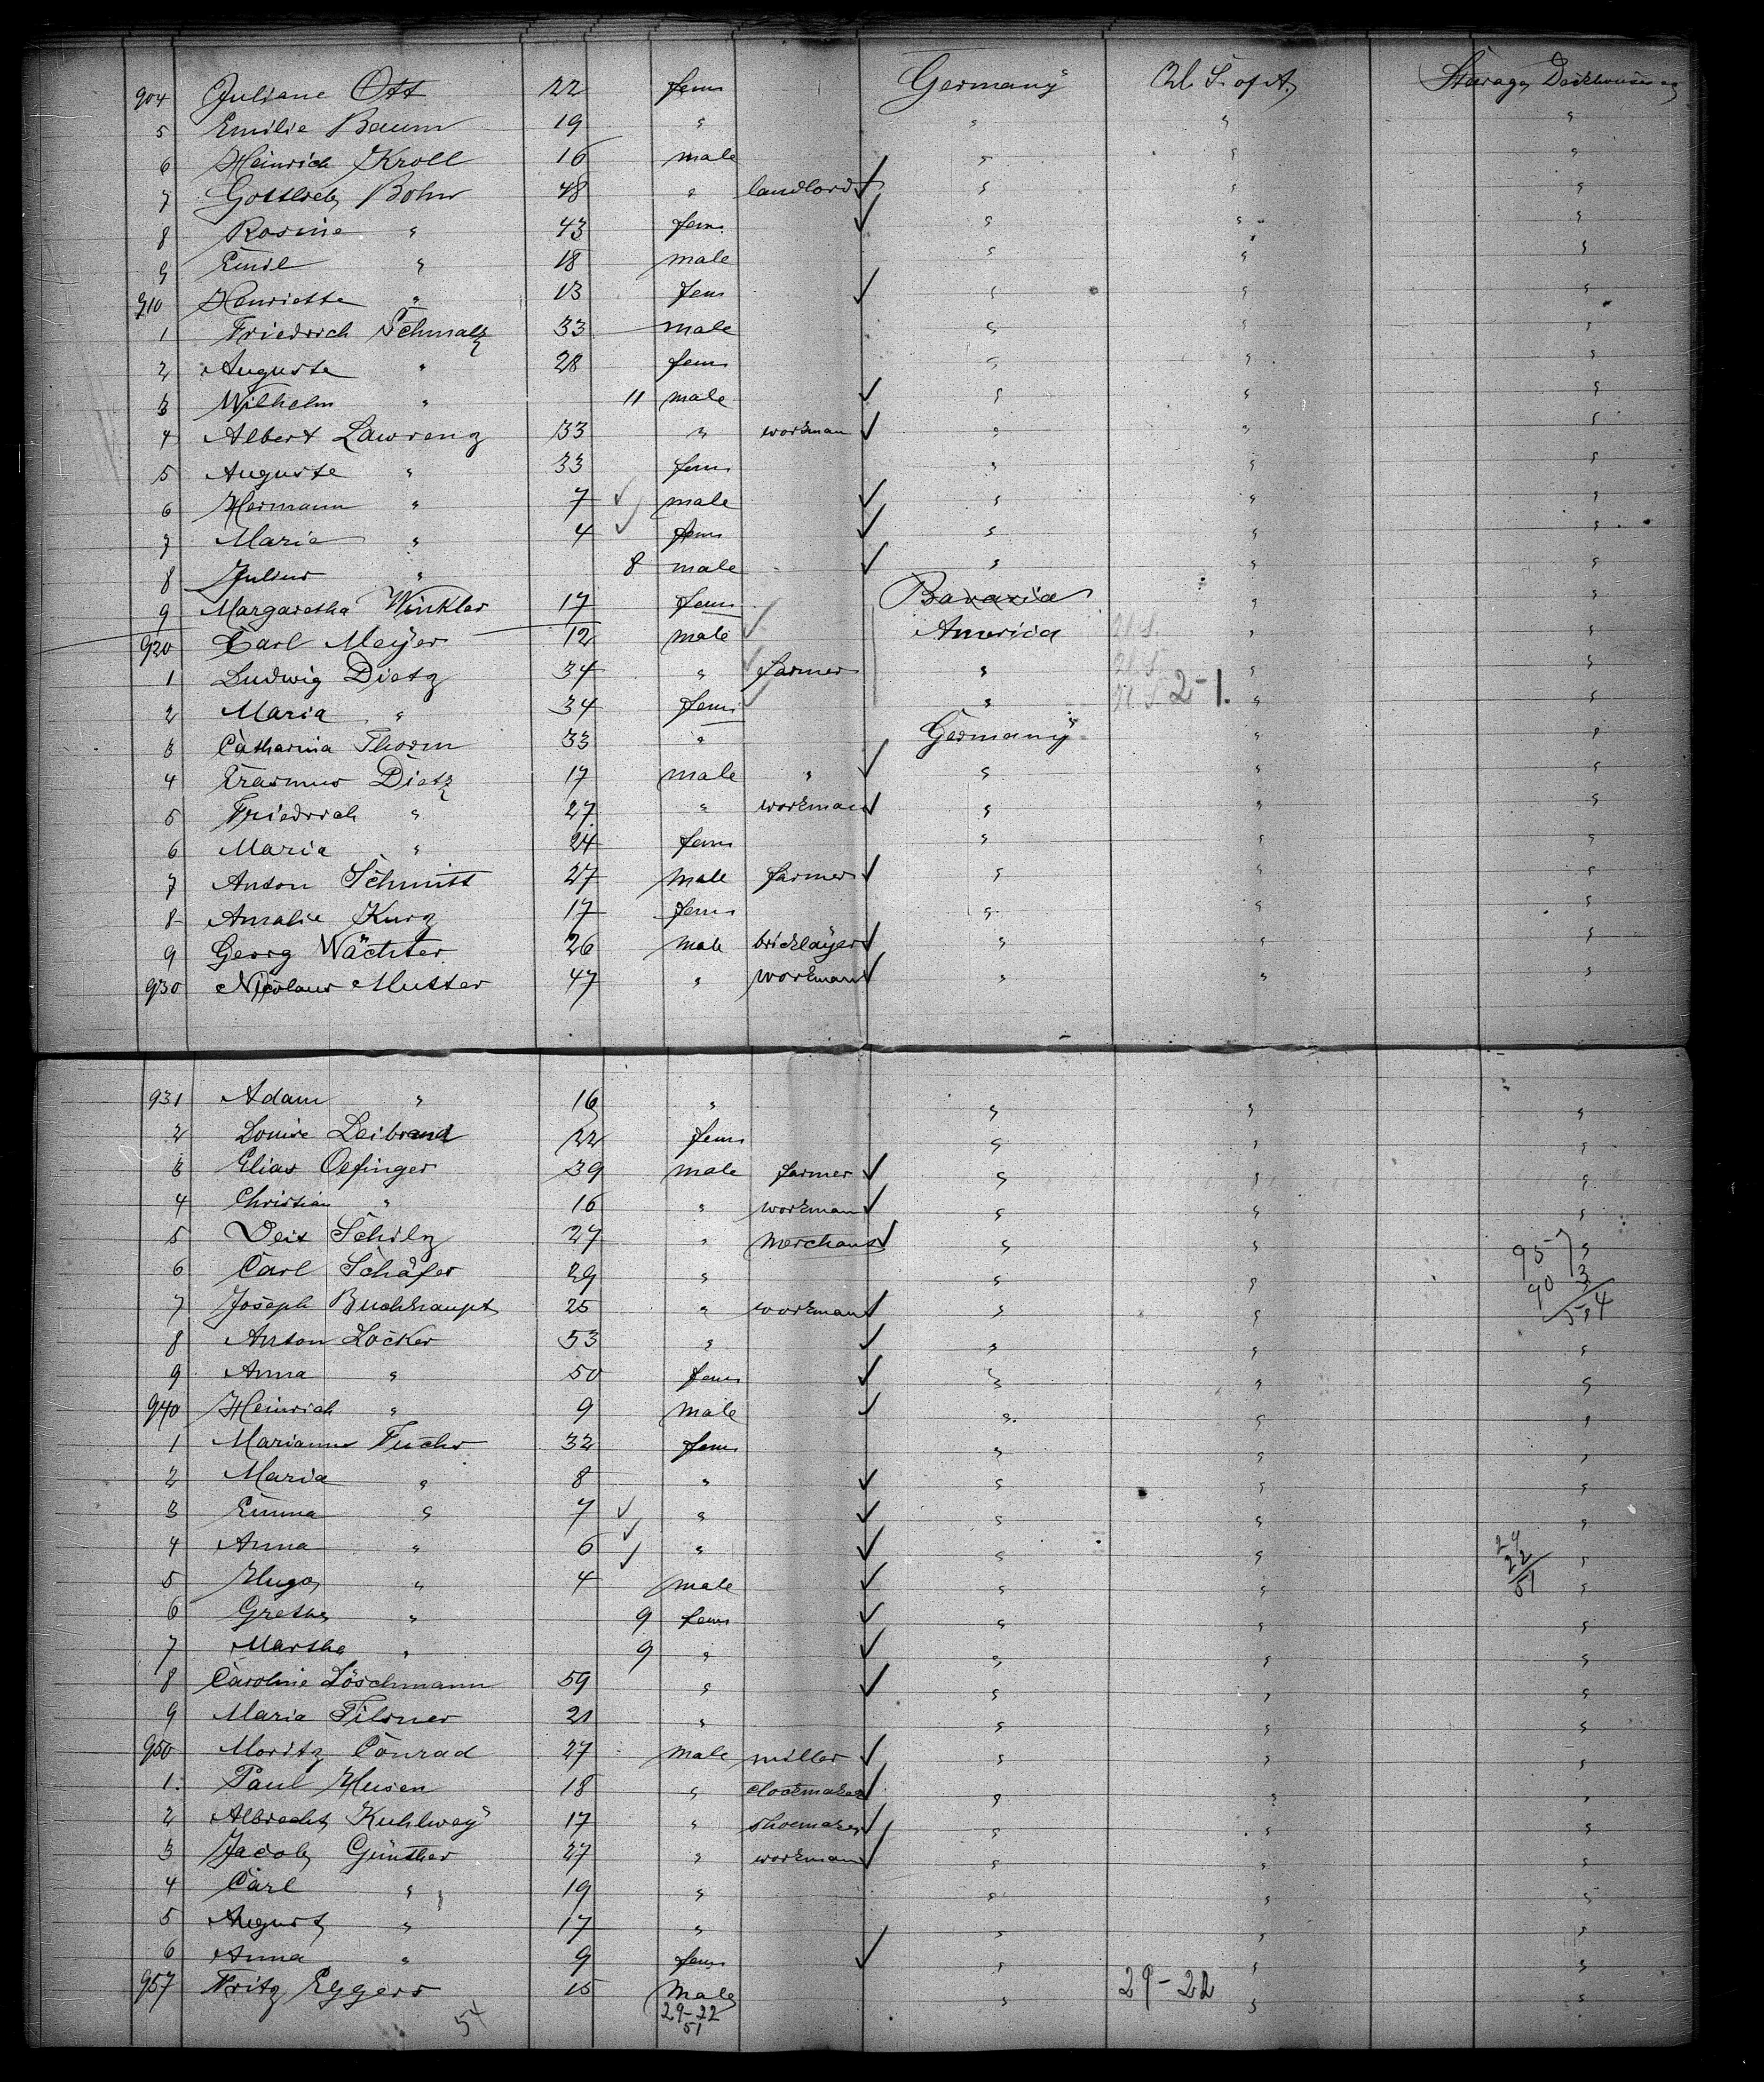 904 Juliane Ott 22 fem Germany U. S. of A. Steerage, Deckhouse
5 Emilie Baum 19 " " " "
6 Heinrich Kroll 16 male " " "
7 Gottlieb Bohn 48 " landlord ✓ " " "
8 Rosine " 43 fem. ✓ " " "
9 Emil " 18 male " " "
910 Henriette " 13 fem ✓ " " "
1 Friedrich Schmalz 33 male " " "
2 Auguste " 28 fem " " "
3 Wilhelm " 11 male ✓ " " "
4 Albert Lawrenz 33 " workman ✓ " " "
5 Auguste " 33 fem " " "
6 Hermann " 7 ✓ male ✓ " " "
7 Maria " 4 ✓ fem ✓ " " "
8 Julius " 8 male ✓ " " "
9 Margaretha Winkler 17 fem Bavaria " "
920 Carl Meÿer 12 male ✓ America U.S. " "
1 Ludwig Dietz 34 " ✓ farmer " U.S. " "
2 Maria " 34 fem ✓ " U.S. 2-1. " "
3 Catharina Thorm 33 " Germanÿ " "
4 Erasmus Dietz 17 male " ✓ " " "
5 Friedrich " 27 " workman ✓ " " "
6 Maria " 24 fem " " "
7 Anton Schmitt 27 male farmer ✓ " " "
8 Amalie Kurz 17 fem " " "
9 Georg Wächter 26 male bricklaÿer ✓ " " "
930 Nicolaus Mutter 47 " workman ✓ " " "
931 Adam " 16 " " " "
2 Louise Leibrand 22 fem " " "
3 Elias Oefinger 39 male farmer ✓ " " "
4 Christian " 16 " workman ✓ " " "
5 Veit Schilz 27 " merchant ✓ " " "
6 Carl Schäfer 29 " " " "
7 Joseph Buchhaupt 25 " workman ✓ " " "
957
903
54
8 Anton Locker 53 " ✓ " " "
9 Anna " 50 fem ✓ " " "
940 Heinrich " 9 male ✓ " " "
1 Marianne Fuchs 32 fem " " "
2 Maria " 8 " ✓ " " "
3 Emma " 7 ✓ " ✓ " " "
4 Anna " 6 ✓ " ✓ " " "
29
22
51
5 Hugo " 4 ✓ male ✓ " " "
6 Grethe " 9 fem ✓ " " "
7 Martha " 9 " ✓ " " "
8 Caroline Löschmann 59 " ✓ " " "
9 Maria Filsner 21 " " " "
950 Moritz Conrad 27 male miller ✓ " " "
1 Paul Husen 18 " clockmaker ✓ " " "
2 Albrecht Kuhlweÿ 17 " shoemaker ✓ " " "
3 Jacob Günther 27 " workman ✓ " " "
4 Carl " 19 " " " "
5 August " 17 " " " "
6 Anna " 9 fem ✓ " " "
957 Fritz Eggers 15 Male " 29-22 " "
54 29-22
51